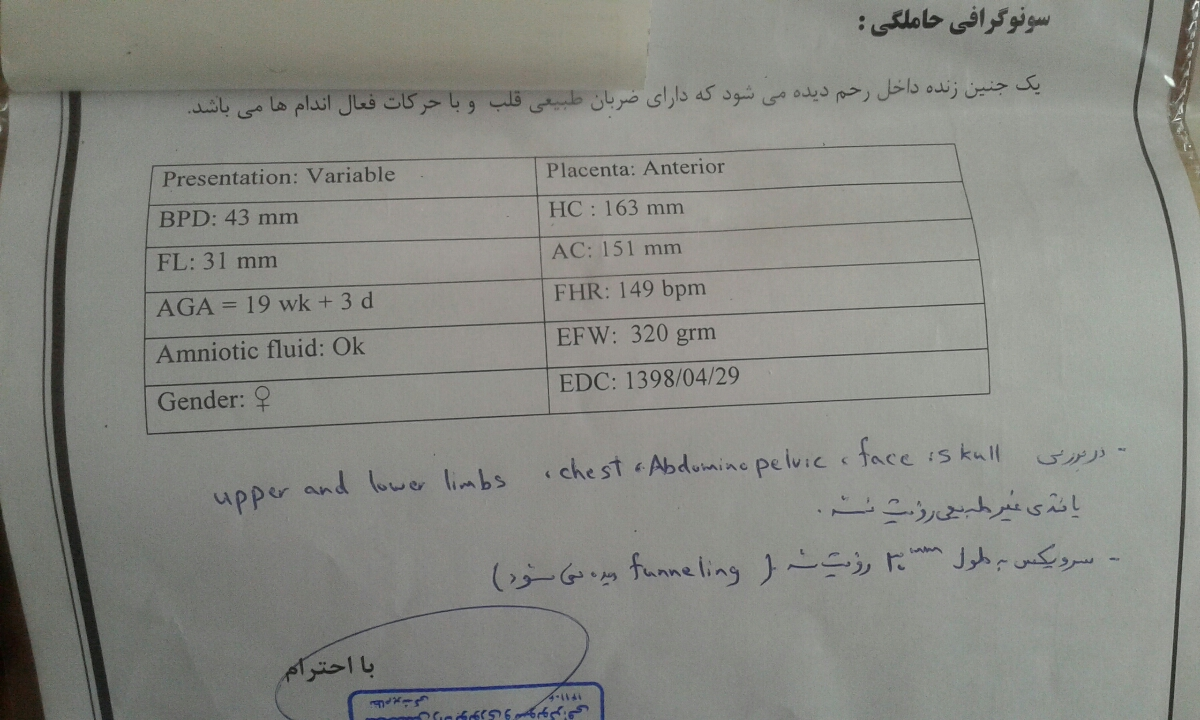 سونوگرافی حاملگی :
یک جنین زنده داخل رحم دیده می شود که دارای ضربان طبیعی قلب و با حرکات فعال اندام ها می باشد.
Presentation: Variable
Placenta: Anterior
BPD: 43 mm
HC : 163 mm
FL: 31 mm
AC: 151 mm
AGA = 19 wk + 3 d
FHR: 149 bpm
Amniotic fluid: Ok
EFW: 320 grm
Gender: ♀
EDC: 1398/04/29
- در بررسی skull ، face ، Abdominopelvic ، chest ، upper and lower limbs
یافته‌ی غیر طبیعی رؤیت نشد.
- سرویکس به طول ۳۰mm رؤیت شد (funneling دیده نمی شود)
با احترام